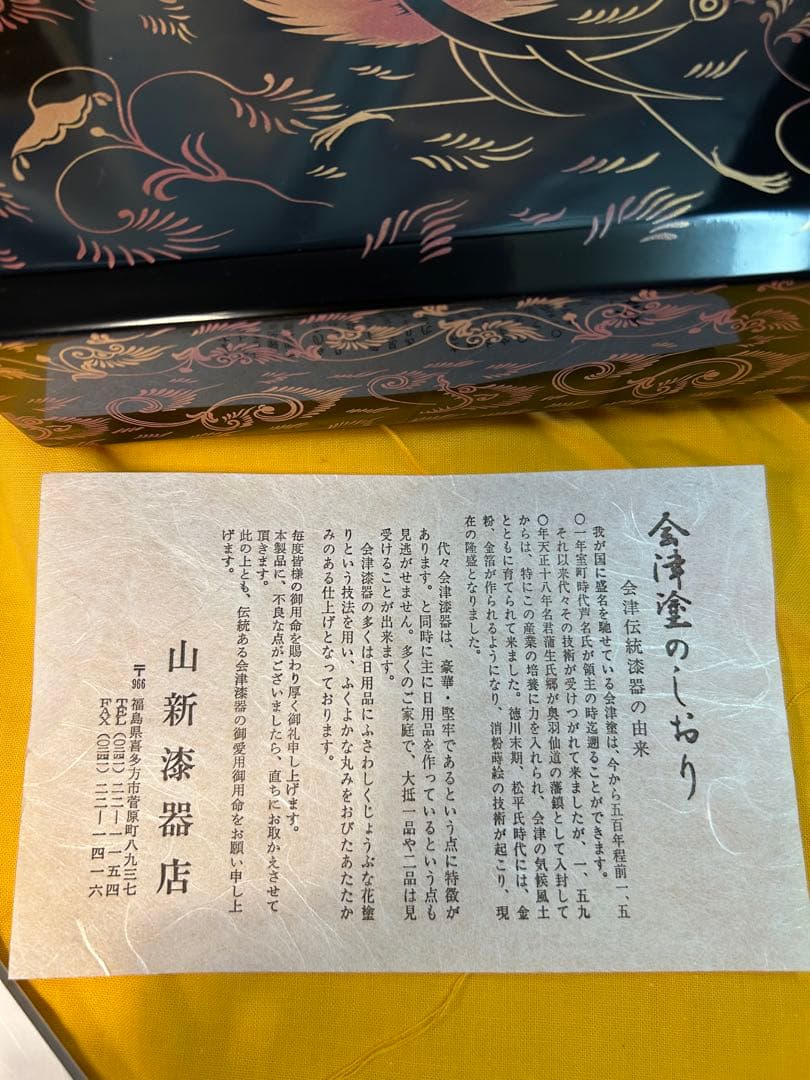 会津塗のしおり
会津伝統漆器の由来
我が国に盛名を馳せている会津塗は、今から五百年程前一、五
〇一年室町時代芦名氏が領主の時迄遡ることができます。
それ以来代々その技術が受けつがれて来ましたが、一、五九
〇年天正十八年名君蒲生氏郷が奥羽仙道の藩鎮として入封して
からは、特にこの産業の培養に力を入れられ、会津の気候風土
とともに育てられて来ました。徳川末期、松平氏時代には、金
粉、金箔が作られるようになり、消粉蒔絵の技術が起こり、現
在の隆盛となりました。
代々会津漆器は、豪華・堅牢であるという点に特徴が
あります。と同時に主に日用品を作っているという点も
見逃がせません。多くのご家庭で、大抵一品や二品は見
受けることが出来ます。
会津漆器の多くは日用品にふさわしくじょうぶな花塗
りという技法を用い、ふくよかな丸みをおびたあたたか
みのある仕上げとなっております。
毎度皆様の御用命を賜わり厚く御礼申し上げます。
本製品に、不良な点がございましたら、直ちにお取かえさせて
頂きます。
此の上とも、伝統ある会津漆器の御愛用御用命をお願い申し上
げます。
山新漆器店
〒966 福島県喜多方市菅原町八九三七
TEL(〇二四一)二二―一一五四
FAX(〇二四一)二二―一四一六